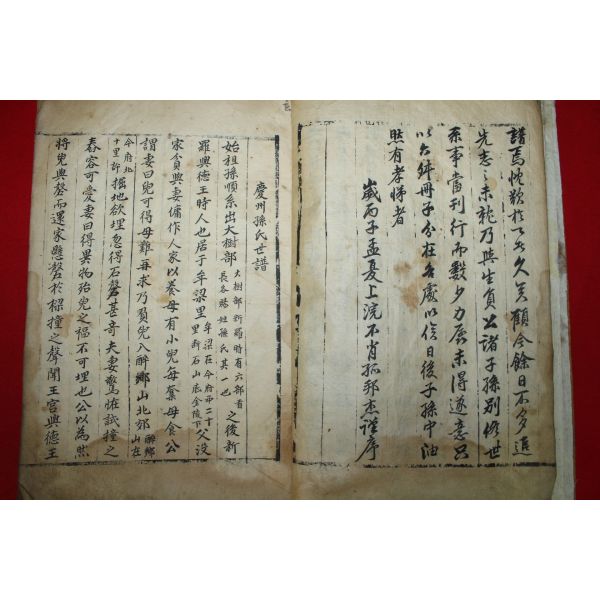 譜焉恍歎於久矣顧今餘日不多追
先志之未就乃與生員公諸子孫別修世
系事當刊行而數夕力屈未得遂意只
以六件冊子分在各處以俟日後子孫中油
然有孝悌者
歲丙子孟夏上浣不肖孤邦杰謹序
慶州孫氏世譜
始祖孫順系出大樹部大樹部新羅時有六部首長各賜姓孫氏其一也之後新
羅興德王時人也居于牟梁里牟梁在今府西二十里新石山底金陵下父沒
家貧與妻傭作人家以養母有小兒每奪母食公
謂妻曰兒可得母難再求乃負兒入醉鄉山北郊醉鄉山在
今府北十里許掘地欲埋忽得石磬甚奇夫妻驚怪試撞之
舂容可愛妻曰得異物殆兒之福不可埋也公以為然
將兒與磬而還家懸磬於樑撞之聲聞王宮興德王